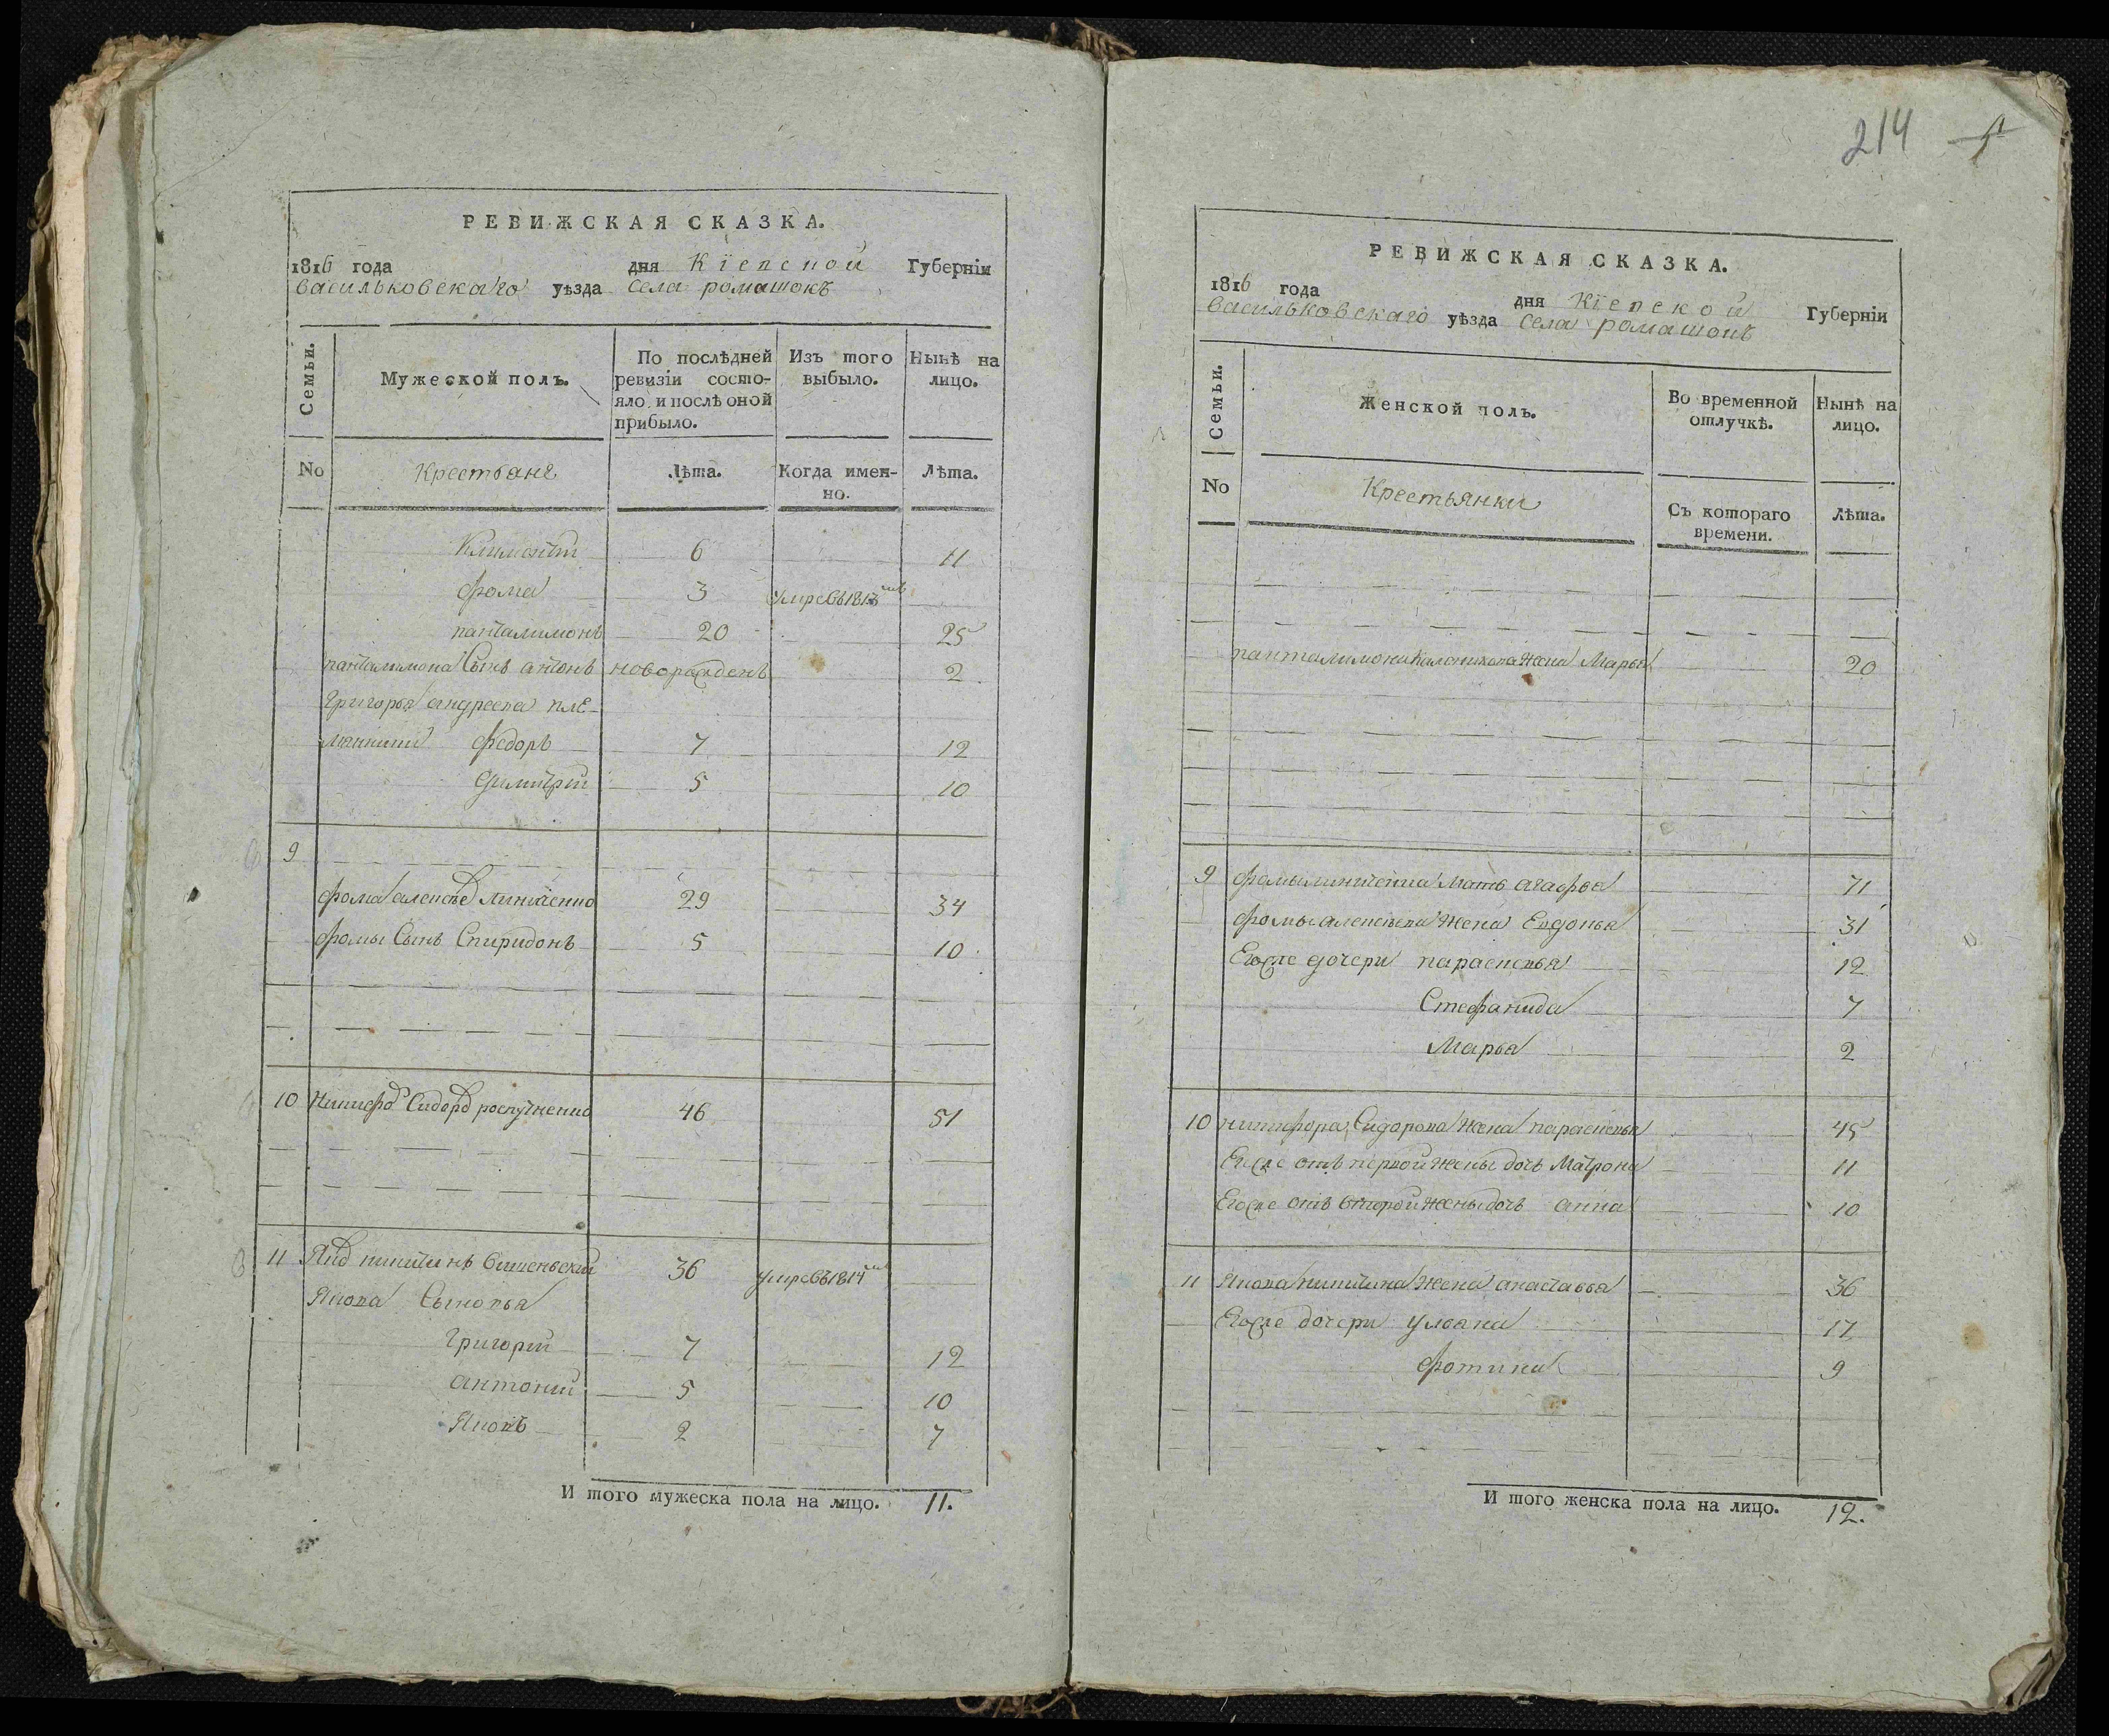 214
РЕВИЖСКАЯ СКАЗКА.
1816 года дня Кіевской Губерніи
васильковскаго уѣзда села ромашокъ
Семьи. Мужеской полъ. По послѣдней ревизіи состояло, и послѣ оной прибыло. Изъ того выбыло. Нынѣ на лицо.
No Крестьяне Лѣта. Когда именно. Лѣта.
Климентій 6 11
фома 3 умре въ 1813
панталимонъ 20 25
панталимона Сынъ антонъ новорожденъ 2
Григорья андреева пле-
мянники федоръ 7 12
Димитрій 5 10
9
фома алексѣев 29 34
фомы Сынъ Спиридонъ 5 10
10 Никифоръ Сидоров 46 51
11 Яков никитинъ 36 умре въ 1814
Якова Сыновья
Григорій 7 12
антоній 5 10
Яковъ 2 7
И того мужеска пола на лицо. 11.
РЕВИЖСКАЯ СКАЗКА.
1816 года дня Кіевской Губерніи
Васильковскаго уѣзда Села ромашокъ
Семьи. Женской полъ. Во временной отлучкѣ. Нынѣ на лицо.
No Крестьянки Съ котораго времени. Лѣта.
панталимона жена Марья 20
9 фомы мать агафья 71
фомы алексѣева жена Евдокья 31
Егоже дочери параскевья 12
Стефанида 7
Марья 2
10 никифора Сидорова жена параскевья 45
Егоже отъ первой жены дочь Матрона 11
Егоже отъ второй жены дочь анна 10
11 Якова никитина жена анастасья 36
Егоже дочери ульяна 17
фотина 9
И того женска пола на лицо. 12.